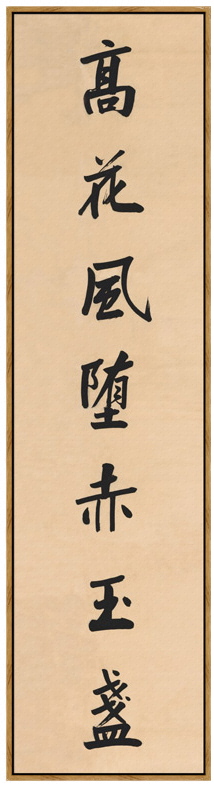 高花風堕赤玉盞